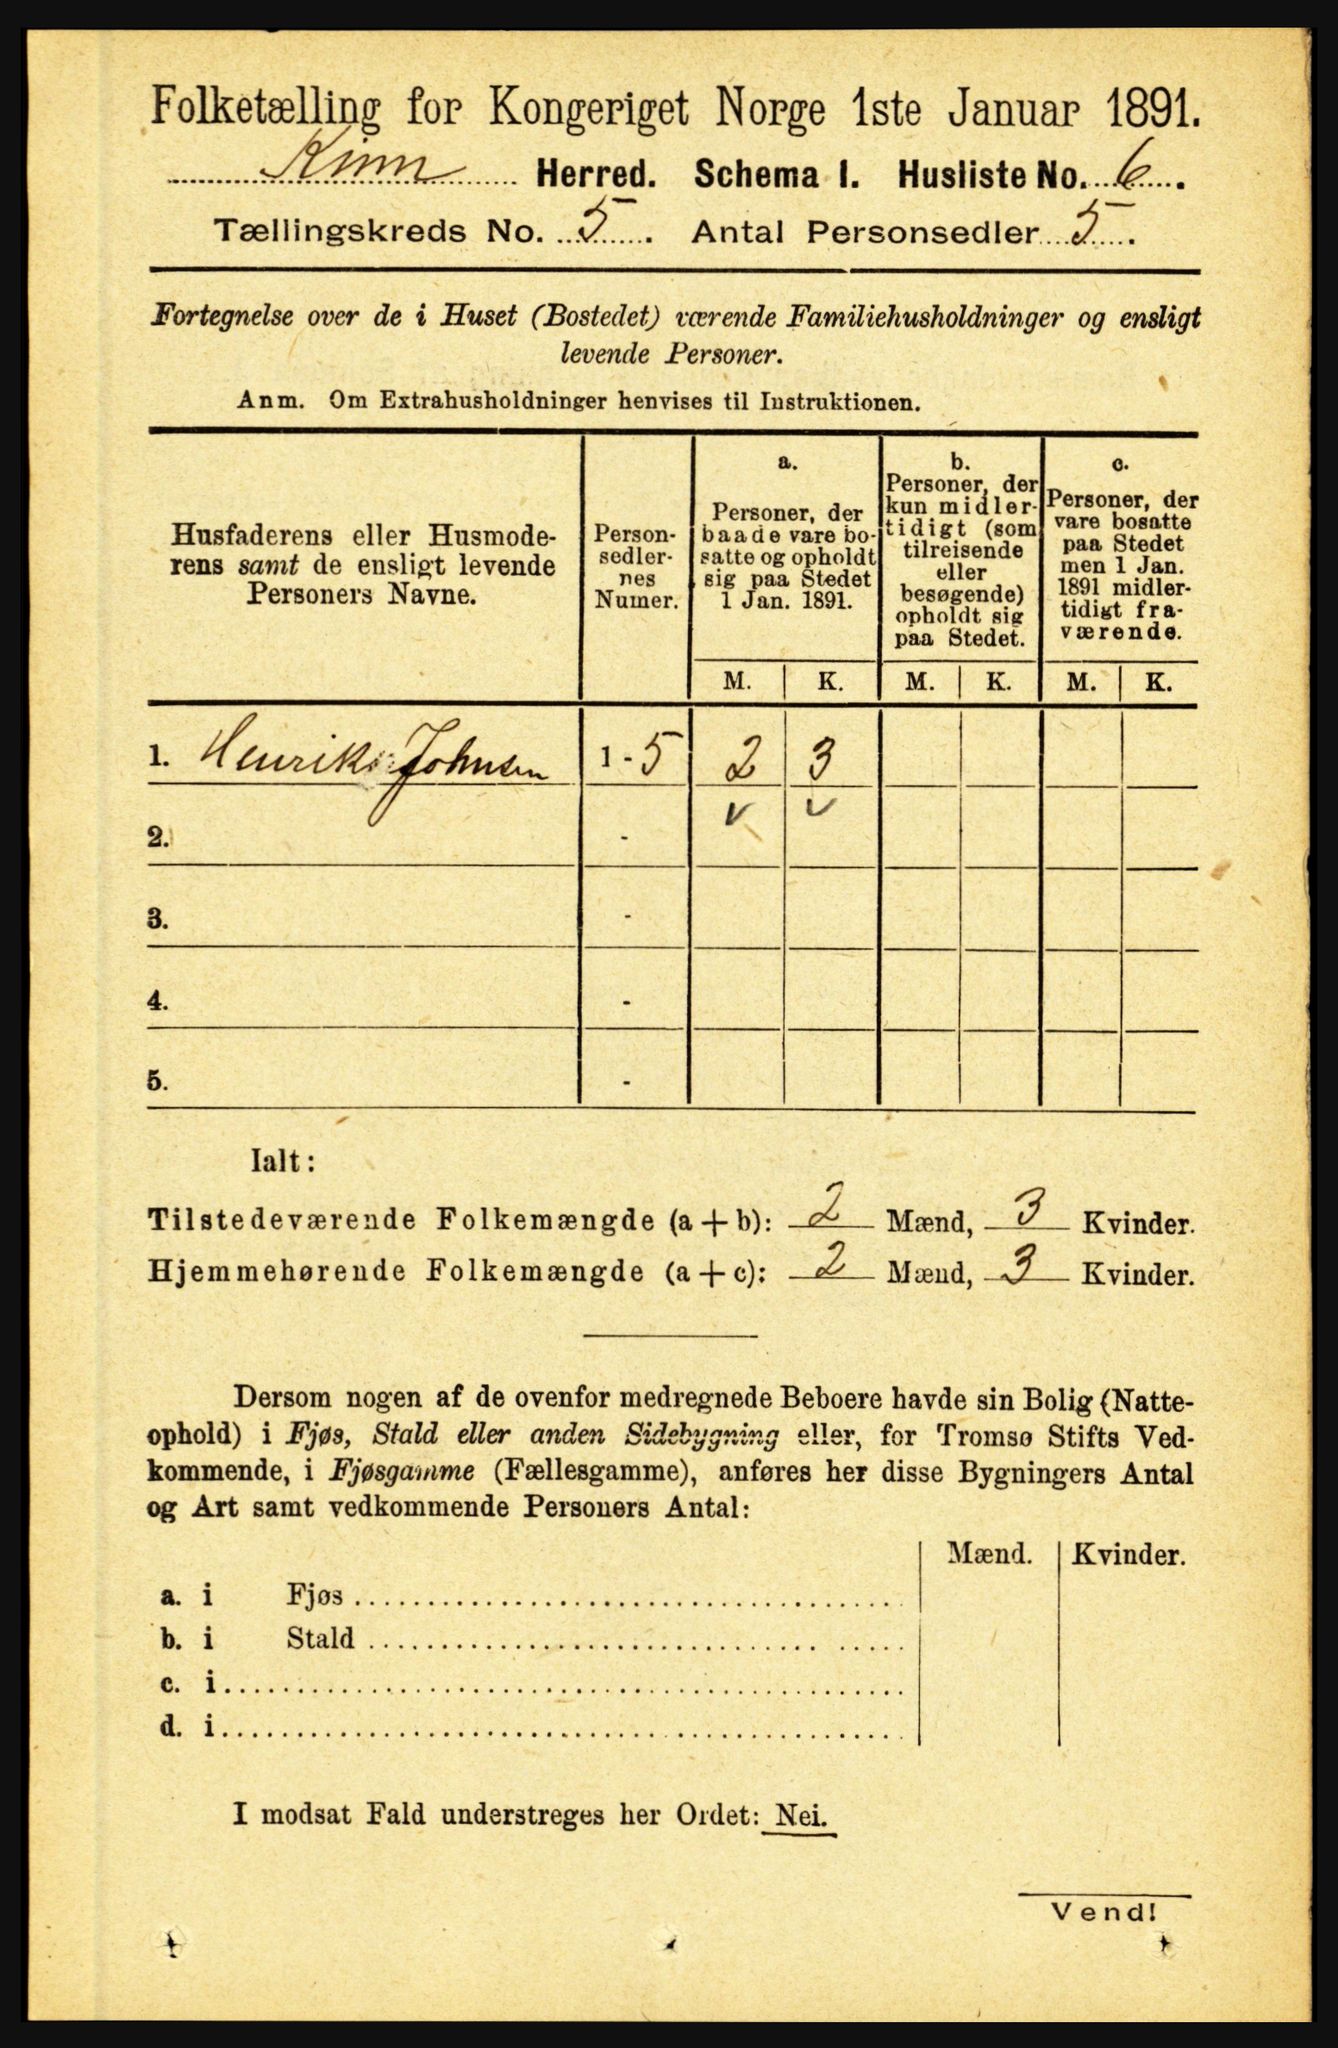 Folketælling for Kongeriget Norge 1ste Januar 1891.
Kinn Herred. Schema I. Husliste No. 6.
Tællingskreds No. 5. Antal Personsedler 5.
Fortegnelse over de i Huset (Bostedet) værende Familiehusholdninger og ensligt
levende Personer.
Anm. Om Extrahusholdninger henvises til Instruktionen.
Husfaderens eller Husmode-
rens samt de ensligt levende
Personers Navne.
Person-
sedler-
nes
Numer.
a.
Personer, der
baade vare bo-
satte og opholdt
sig paa Stedet
1 Jan. 1891.
b.
Personer, der
kun midler-
tidigt (som
tilreisende
eller
besøgende)
opholdt sig
paa Stedet.
c.
Personer, der
vare bosatte
paa Stedet
men 1 Jan.
1891 midler-
tidigt fra-
værende.
M. K. M. K. M. K.
1. Henrik Johnsen 1 - 5 2 3
v v
2. -
3. -
4. -
5. -
Ialt:
Tilstedeværende Folkemængde (a + b): 2 Mænd, 3 Kvinder.
Hjemmehørende Folkemængde (a + c): 2 Mænd, 3 Kvinder.
Dersom nogen af de ovenfor medregnede Beboere havde sin Bolig (Natte-
ophold) i Fjøs, Stald eller anden Sidebygning eller, for Tromsø Stifts Ved-
kommende, i Fjøsgamme (Fællesgamme), anføres her disse Bygningers Antal
og Art samt vedkommende Personers Antal:
Mænd. Kvinder.
a. i Fjøs
b. i Stald
c. i
d. i
I modsat Fald understreges her Ordet: Nei.
Vend!